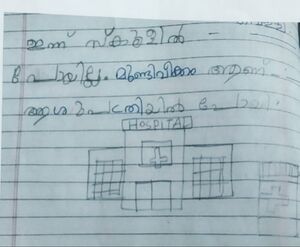 ഇന്ന് സ്കൂളിൽ
പോയില്ല. മുണ്ടിവീക്കം ആണ്
ആശുപത്രിയിൽ പോയി.
HOSPITAL